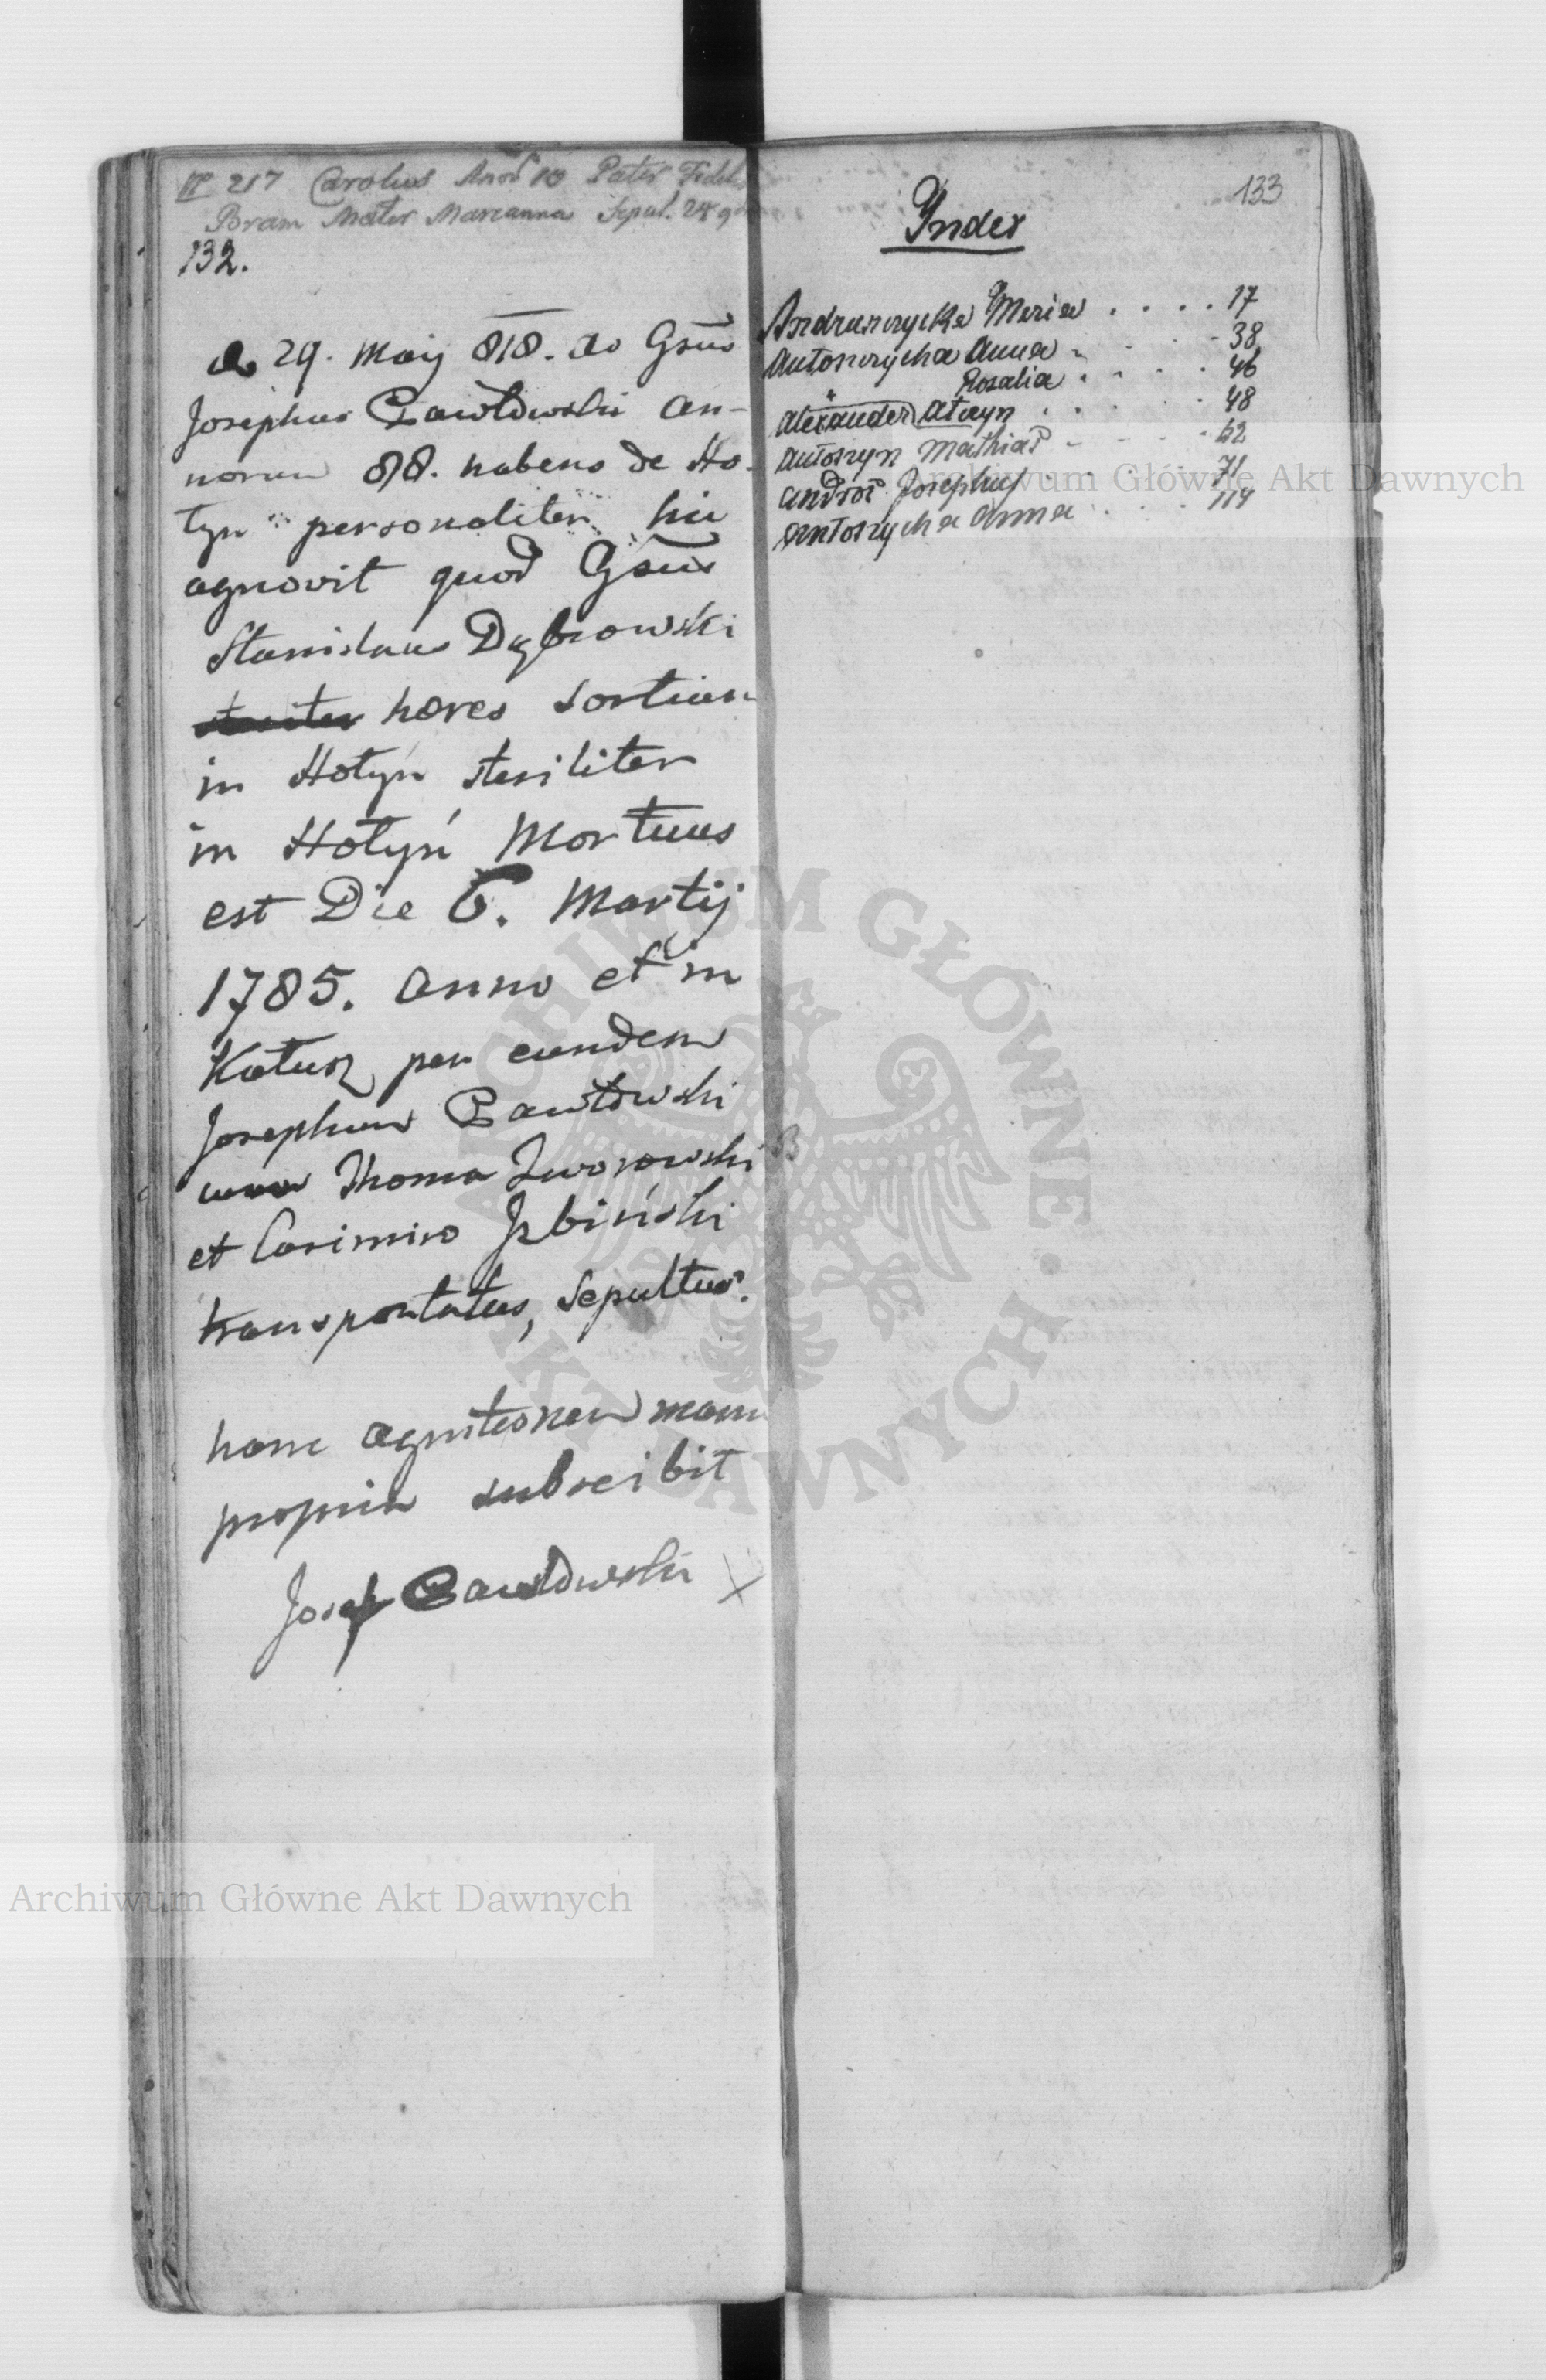 217 Carolus Pater Fidelis
Mater Marianna Sepul. 24
132.
29. Maij 818. ao Gsus
Josephus Pawłowski an-
norum 88. habens de Ho-
łyn personaliter hic
agnovit quod Gsus
Stanislaus Dąbrowski
hæres sortium
in Hołyń steriliter
in Hołyń Mortuus
est Die 6. Martij
1785. anno et in
Kałusz per eundem
Josephum Pawłowski
Thoma Zworowski
et Casimiro Izbiński
transportatus, Sepultus.
hanc agnitionem manu
propria subscibit
Josep Pawłowski
133
Index
Andruszczycka Maria .... 17
Antoszczycha Anna 38
" Rosalia .... 46
Alexander 48
Antoszyn Mathias 62
Josephus 71
Antoszycha Anna ... 114
Archiwum Główne Akt Dawnych
ARCHIWUM GŁÓWNE AKT DAWNYCH
Archiwum Główne Akt Dawnych